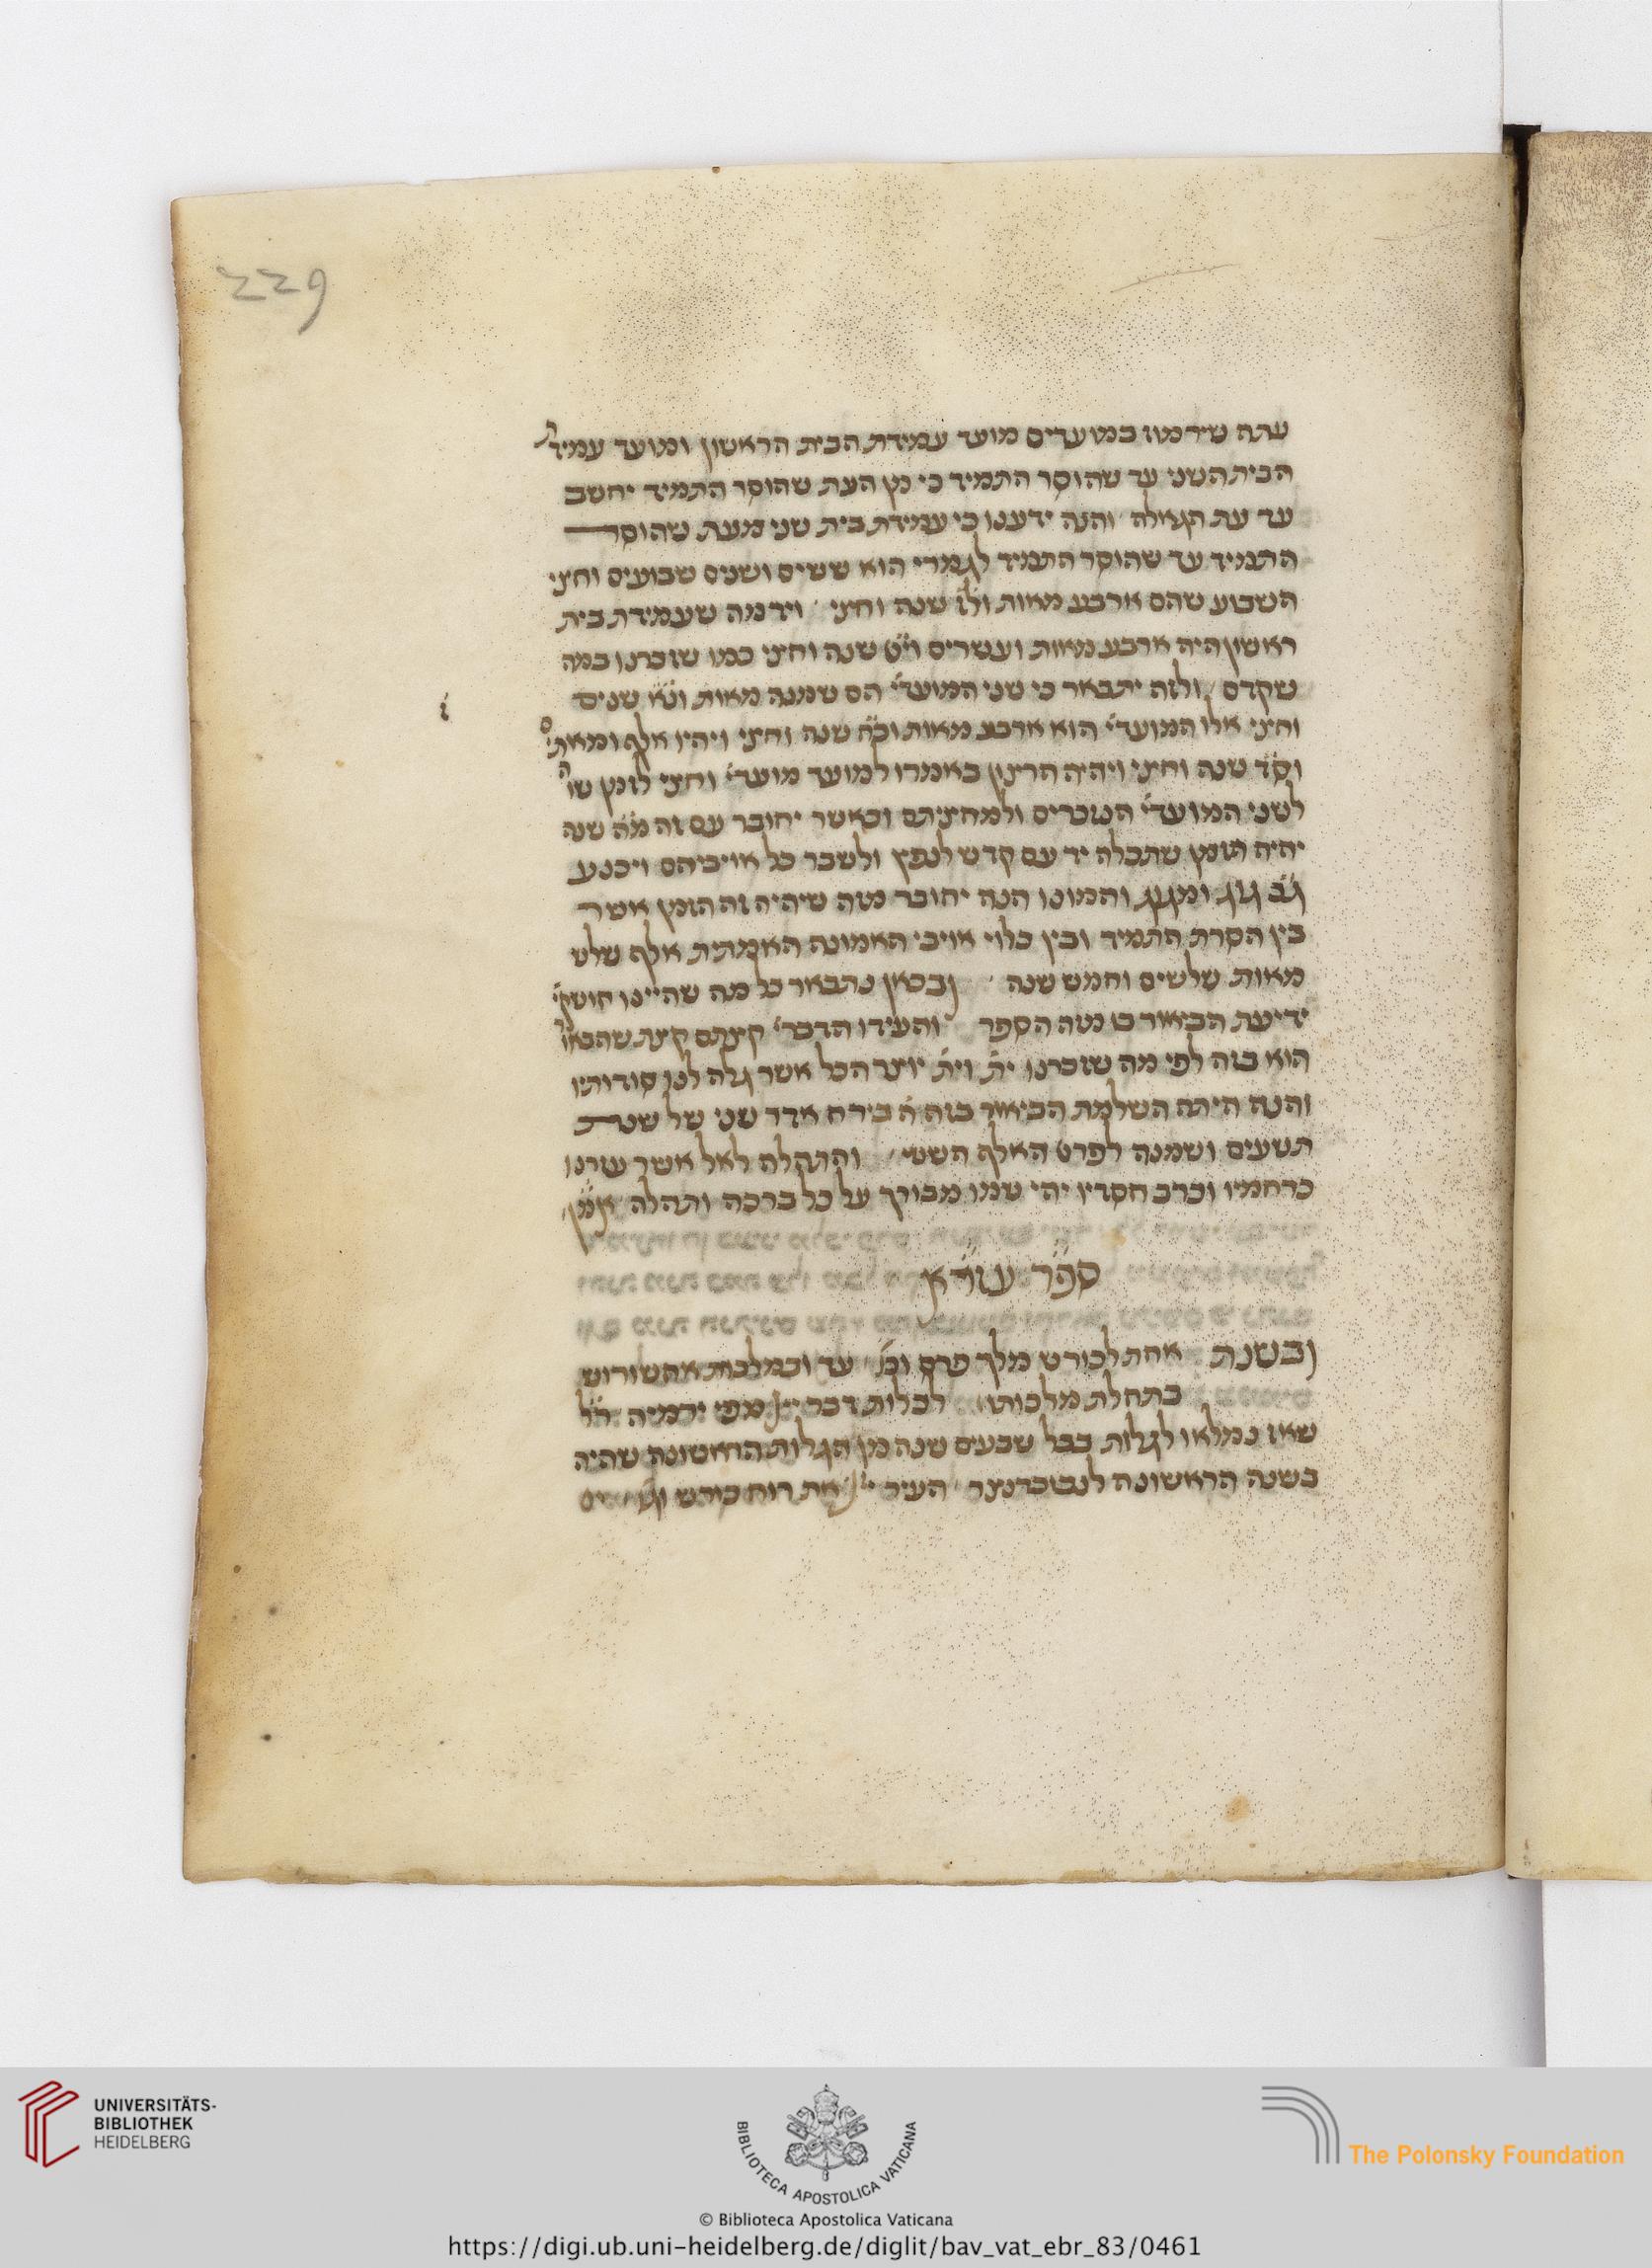 229
עתה שירמוז במועדים מועד עמידת הבית הראשון ומועד עמיד׳
הבית השני עד שהוסר התמיד כי מן העת שהוסר התמיד יחשב
עד עת הגאולה והנה ידענו כי עמידת בית שני מעת שהוסר
התמיד עד שהוסר התמיד לגמרי הוא ששים ושנים שבועים וחצי
השבוע שהם ארבע מאות ול״ז שנה וחצי וידמה שעמידת בית
ראשון היה ארבע מאות ועשרים וי״ט שנה וחצי כמו שזכרנו במה
שקדם ולזה יתבאר כי שני המועדי׳ הם שמנה מאות ונ״א שנים
וחצי אלו המועדי׳ הוא ארבע מאות וכ״ח שנה וחצי ויהיו אלף ומאתי׳
וס״ד שנה וחצי ויהיה הרצון באמרו למועד מועדי׳ וחצי לזמן שוה
לשני המועדי׳ הנזכרים ולמחציתם וכאשר יחובר עם זה מ״ה שנה
יהיה הזמן שתכלה יד עם קדש לנפץ ולשבר כל אויביהם ויכנע
ג״כ גוג ומגוג והמונו הנה יחובר מזה שיהיה זה הזמן אשר
בין הסרת התמיד ובין כלוי אויבי האמונה האמתית אלף שלש
מאות שלשים וחמש שנה ובכאן נתבאר כל מה שהיינו חוש׳
ידיעת הביאור בו מזה הספר והעידו הדברי׳ קצתם קצת שהבאו׳
הוא בזה לפי מה שזכרנו ית׳ וית׳ יוצר הכל אשר גלה לנו סודותיו
והנה היתה השלמת הביאור בזה א׳ בירח אדר שני של שנת
תשעים ושמנה לפרט האלף הששי והתהלה לאל אשר עזרנו
ברחמיו וברב חסדיו יהי שמו מבורך על כל ברכה ותהלה אמ״ן
ספ״ר עזר״א
ובשנת אחת לכורש מלך פרס וכו׳ עד ובמלכות אחשורוש
בתחלת מלכותו לכלות דבר יי׳ מפי ירמיה ר״ל
שאז נמלאו לגלות בבל שבעים שנה מן הגלות הראשונה שהיה
בשנה הראשונה לנבוכדנצר העיר יי׳ את רוח כורש
UNIVERSITÄTS-
BIBLIOTHEK
HEIDELBERG
BIBLIOTECA APOSTOLICA VATICANA
The Polonsky Foundation
© Biblioteca Apostolica Vaticana
https://digi.ub.uni-heidelberg.de/diglit/bav_vat_ebr_83/0461